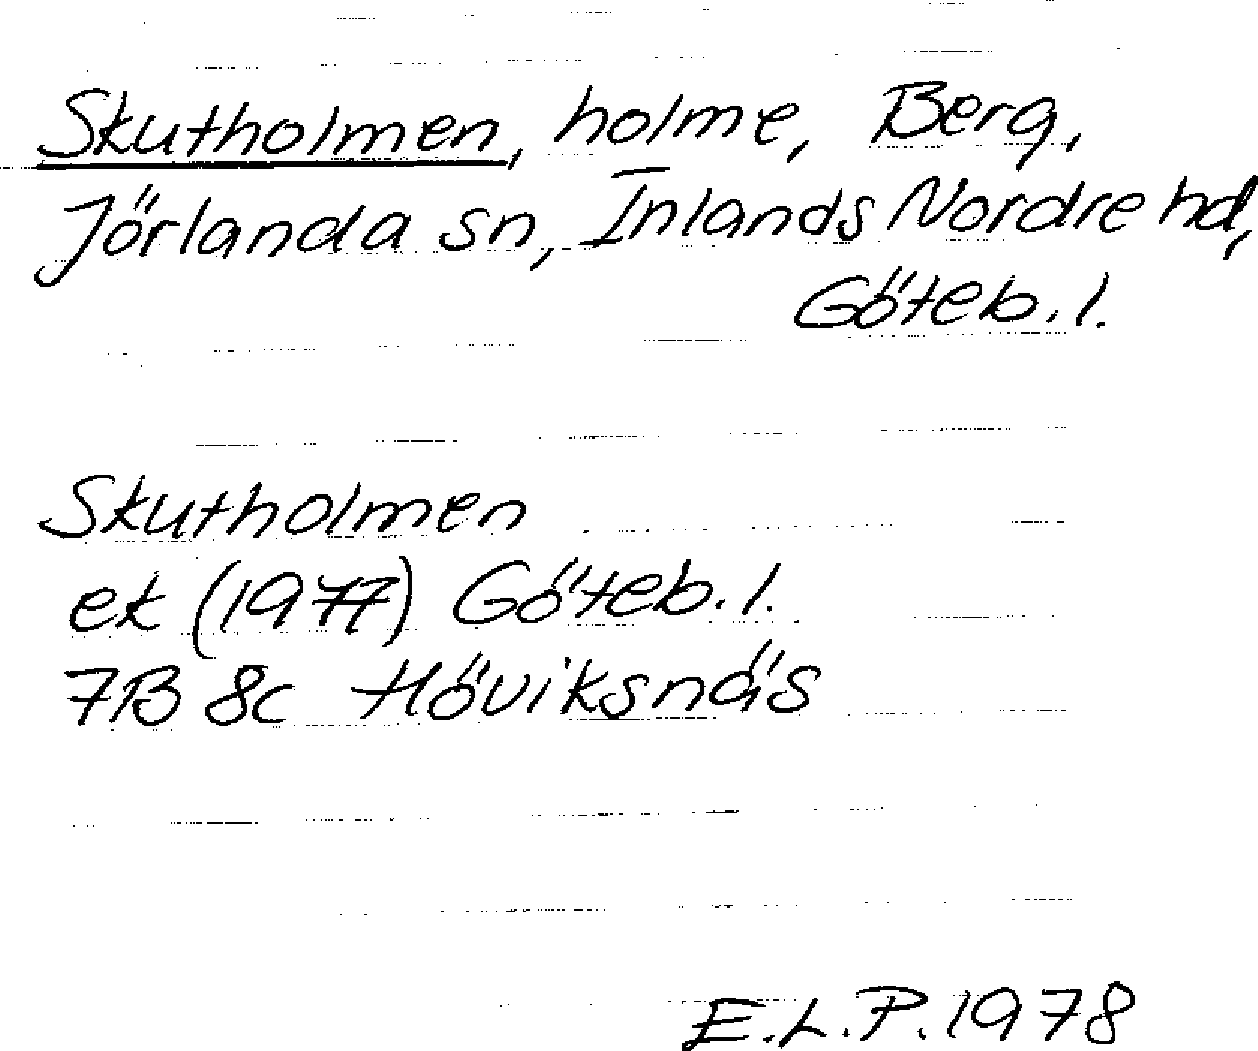 Skutholmen, holme, Berg,
Jörlanda sn, Inlands Nordre hd,
Göteb. l.
Skutholmen
ek (1977) Göteb. l.
7B 8c Höviksnäs
E.L.P. 1978